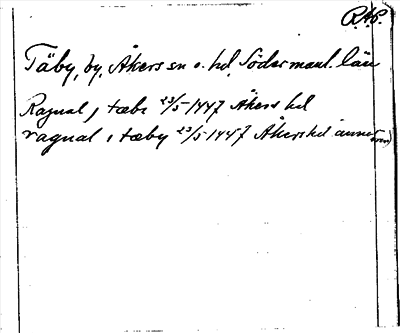 R.A.P.
Täby, by, Åkers sn o. hd, Södermanl. län
Ragual j tæbi 23/5 1447 Åkers hd
ragual i tæby 23/5 1447 Åkers hd